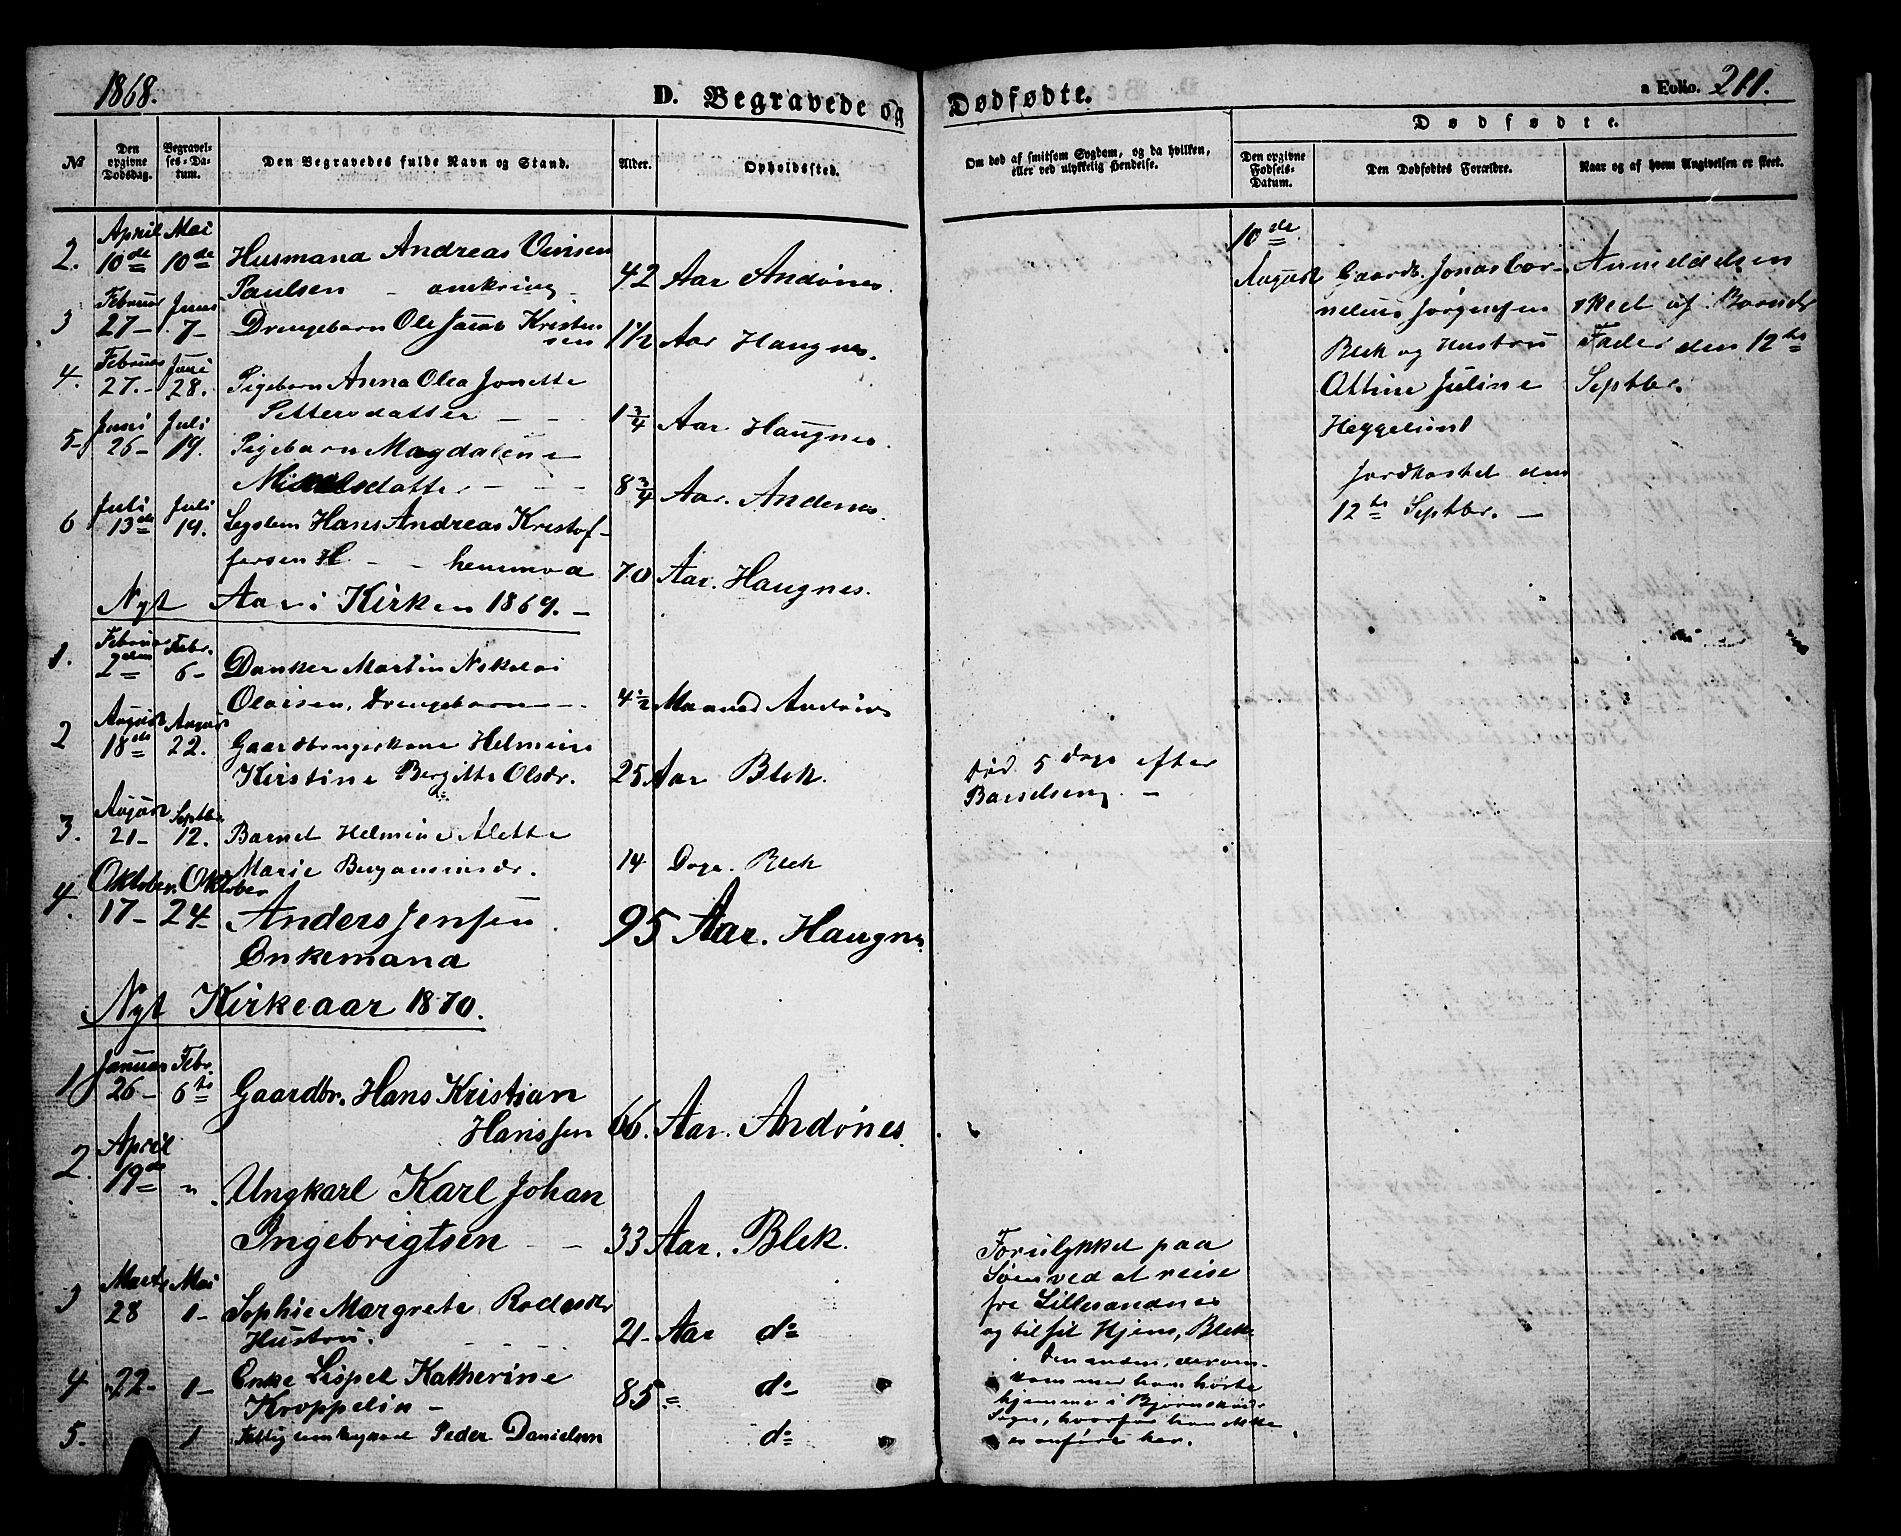 1868.
D. Begravede og Dødfødte.
a Folio. 211.
№
Den opgivne Dødsdag.
Begravelses-Datum.
Den Begravedes fulde Navn og Stand.
Alder.
Opholdssted.
Om død af smitsom Sygdom, og da hvilken, eller ved ulykkelig Hendelse.
Dødfødte.
Den opgivne Fødsels-Datum.
Den Dødfødtes Forældre.
Naar og af hvem Angivelsen er skeet.
April Mai
2. 10de 10de Husmand Andreas
Paulsen - omkring - 42 Aar Andønes.
Februar Juni
3 27 - 7 - Drengebarn Ole Jacob Kristen
sen 1 1/2 Aar Haugnes.
Februar Juni
4. 27. - 28. Pigebarn Anna Olea Jonette
Pettersdatter - - 1 3/4 Aar Haugnes.
Juni Juli
5 - 26 - 19. Pigebarn Magdalene
- - - 8 3/4 Aar. Andenes.
Juli Juli
6 13de 19. Hans Andreas Kristof-
fersen H - - 70 Aar. Haugnes.
Nyt Aar i Kirken 1869. -
Februar Febr.
1. 2 6 - Danker Martin Nikolai
Olaisen, Drengebarn - 4 1/2 Maaned
August August
2 18de 22. Gaardbrugerkone Helmine
Kirstine Bergitte Olsdr. 25 Aar Blek.
Død 5 Dage efter
Barselseng. -
August Septbr
3. 21 - 12. Barnet Helmine Alette
Marie Benjaminsdr. 14 Dage. Blek
Oktober. Oktober
4. 17 - 24 Anders Jensen
Enkemand 95 Aar. Haugnes
Nyt Kirkeaar 1870.
Januar Febr.
1 26 - 6te Gaardbr. Hans Kristian
Hanssen 66. Aar. Andønes.
April
2. 19de " Ungkarl Karl Johan
Ingebrigtsen - - 33 Aar. Blek.
Forulykket paa
Søen ved at reise
fra Lillesandnes
og til sit Hjem, Blek.
Den anden, der om-
kom med ham hørte
hjemme i Bjørnskinds
Sogn, hvorfor han ikke
er anført her.
Marts Mai
3 28 1 - Sophie Margrete Rodesdr
Hustru. 21 - Aar do
4 " 22 - 1 - Enke Lispet Katherine
Kroppelin - 85 = do
5. 1 Peder Danielsen do
10de
August
Gaardb. Jonas Cor-
nelius Jørgensen
Blek og Hustru
Attine Juline
Heggelund
Jordkastet den
12te Septbr. -
Anmeldelsen
skeet af Barnets
Fader den 12te
Septbr.